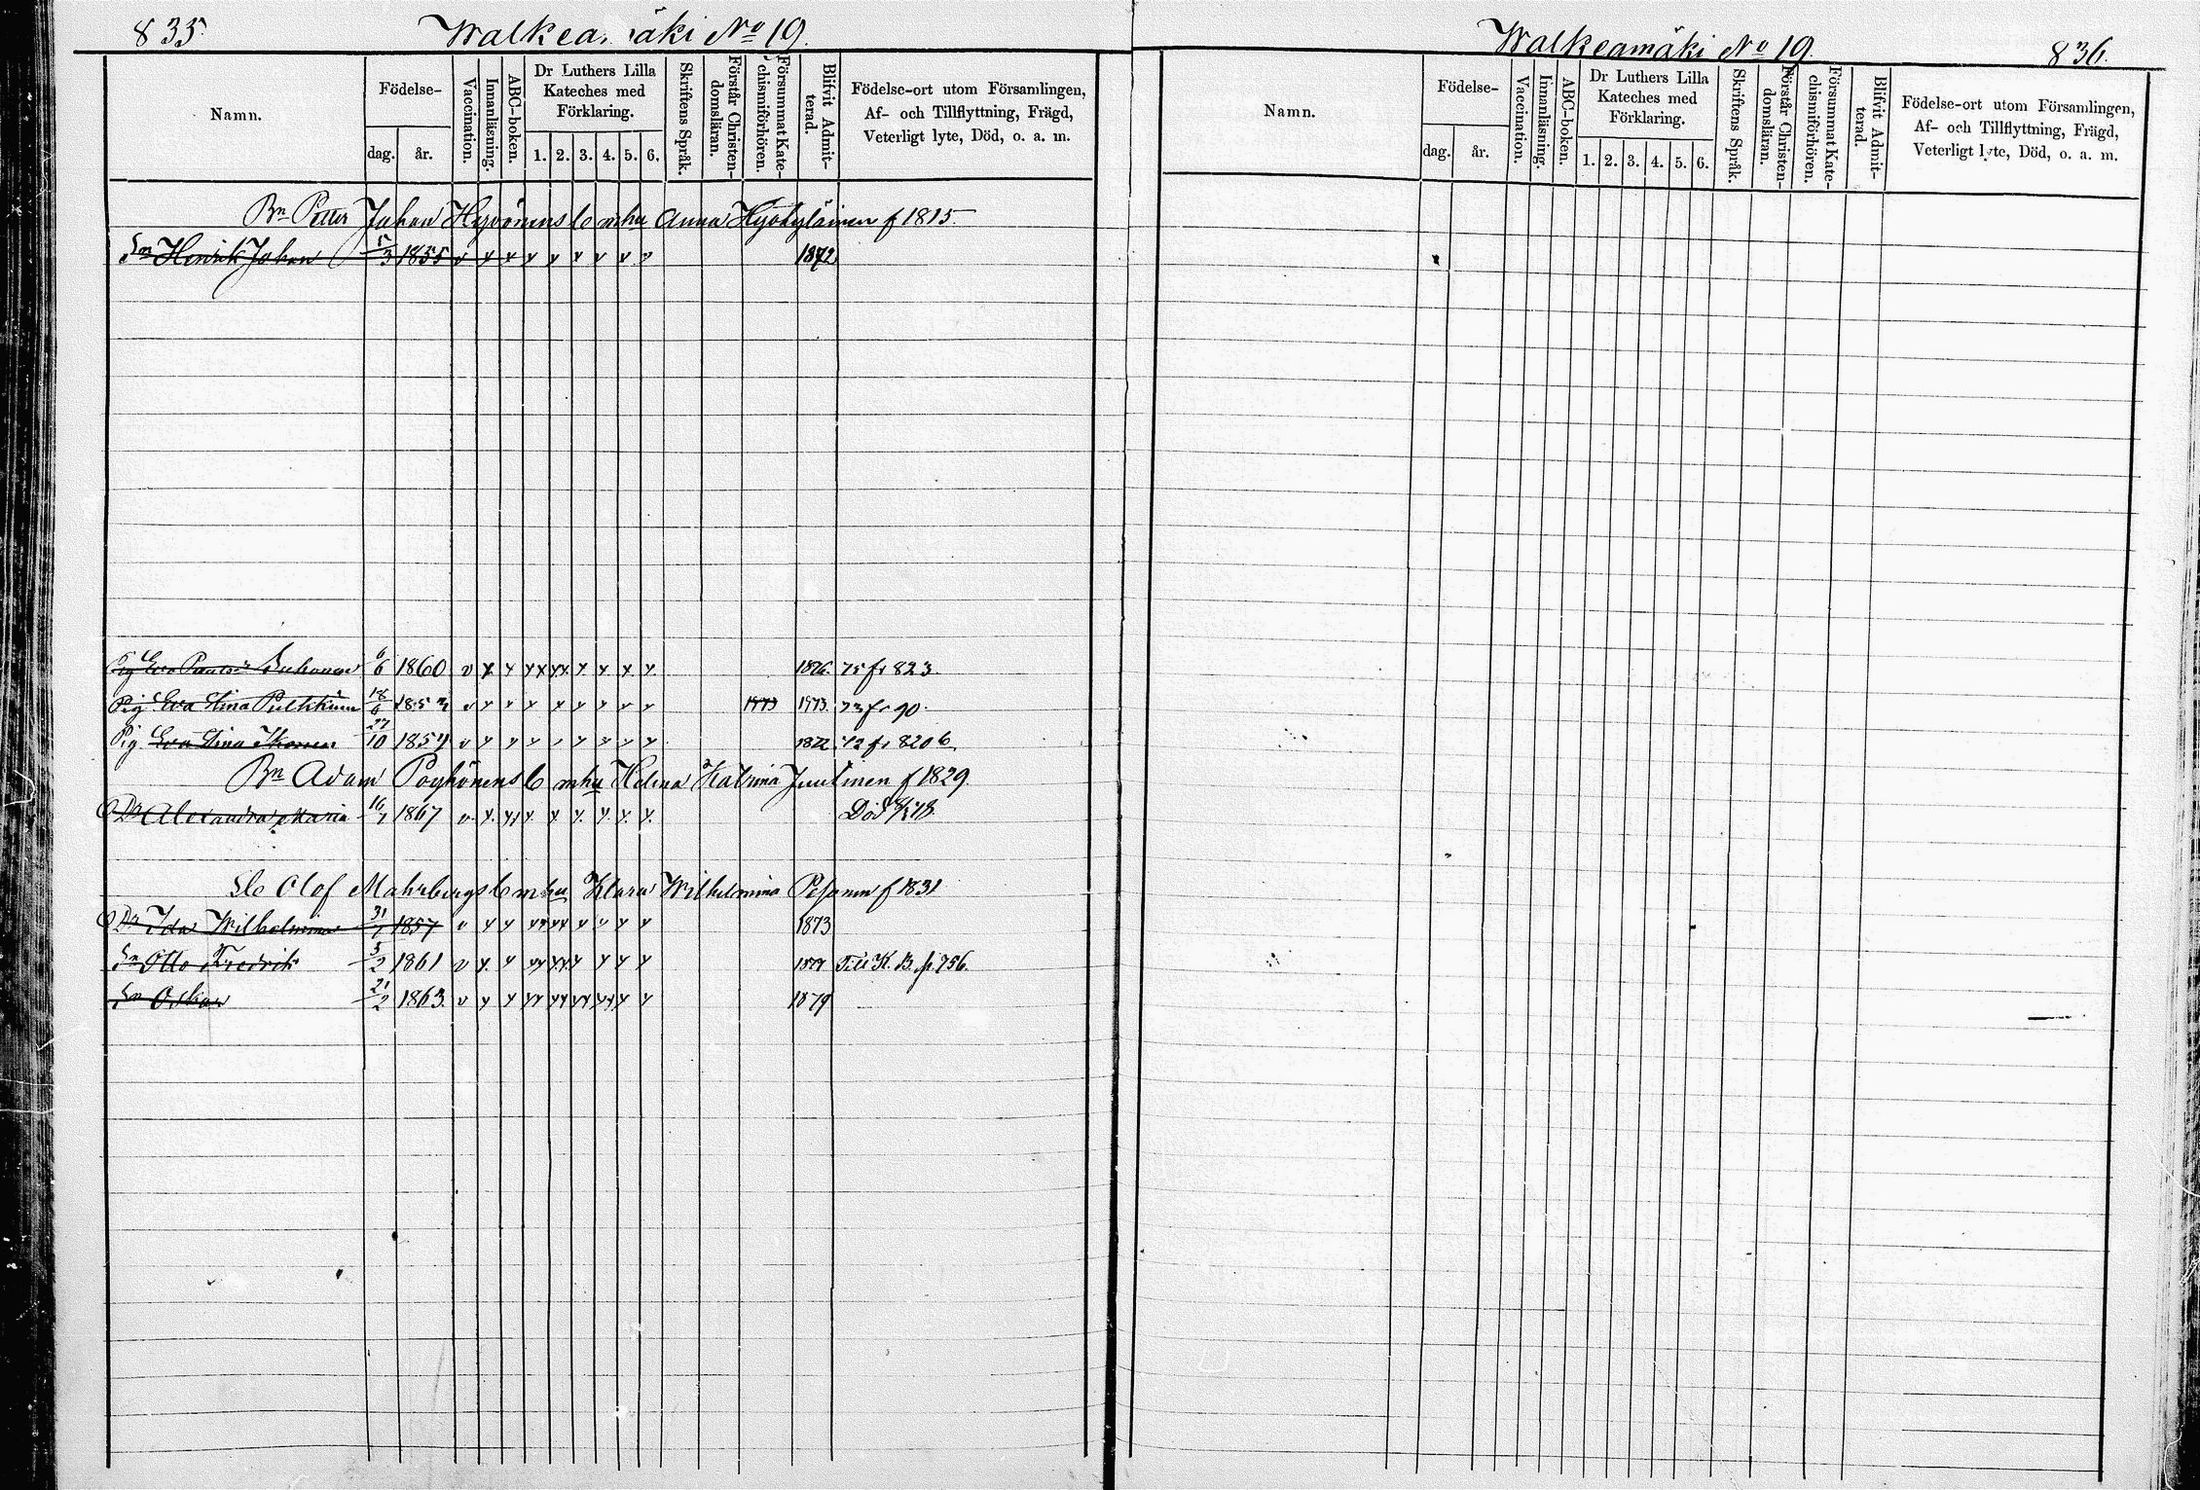 835.
Walkeamäki No 19.
Namn.
Födelse-
dag.
år.
Vaccination.
Innanläsning.
ABC-boken.
Dr Luthers Lilla
Kateches med
Förklaring.
1. 2. 3. 4. 5. 6.
Skriftens Språk.
Förstår Christen-
domsläran.
Försummat Kate-
chismiförhören.
Blifvit Admit-
terad.
Födelse-ort utom Församlingen,
Af- och Tillflyttning, Frägd,
Veterligt lyte, Död, o. a. m.
Bn Petter Johan Hyvönens b mhu Anna Hyötyläinen f 1815
Sn Henrik Johan 5/3 1855 1872
Pig Eva 6/6 1860 1876. 75 fr 823.
Pig Eva Stina 18/6 1853 1873 1873. 73 fr 90.
Pig Eva Stina Ikonen 27/10 1854 1872 72 fr 820 b.
Bn Adam Pöyhönens b mhu Helena Katrina Juutinen f 1829.
Dr Alexandra Maria 16/1 1867 Död
Olof Mahrbergs b mhu Klara Wilhelmina Pesonen f 1831
Dr Ida Wilhelmina 31/1 1857 1873
Sn Otto Fredrik 5/2 1861 1879 Till K. B. p. 756.
Sn Oskar 21/2 1863 1879
Walkeamäki No 19.
836.
Namn.
Födelse-
dag.
år.
Vaccination.
Innanläsning.
ABC-boken.
Dr Luthers Lilla
Kateches med
Förklaring.
1. 2. 3. 4. 5. 6.
Skriftens Språk.
Förstår Christen-
domsläran.
Försummat Kate-
chismiförhören.
Blifvit Admit-
terad.
Födelse-ort utom Församlingen,
Af- och Tillflyttning, Frägd,
Veterligt lyte, Död, o. a. m.